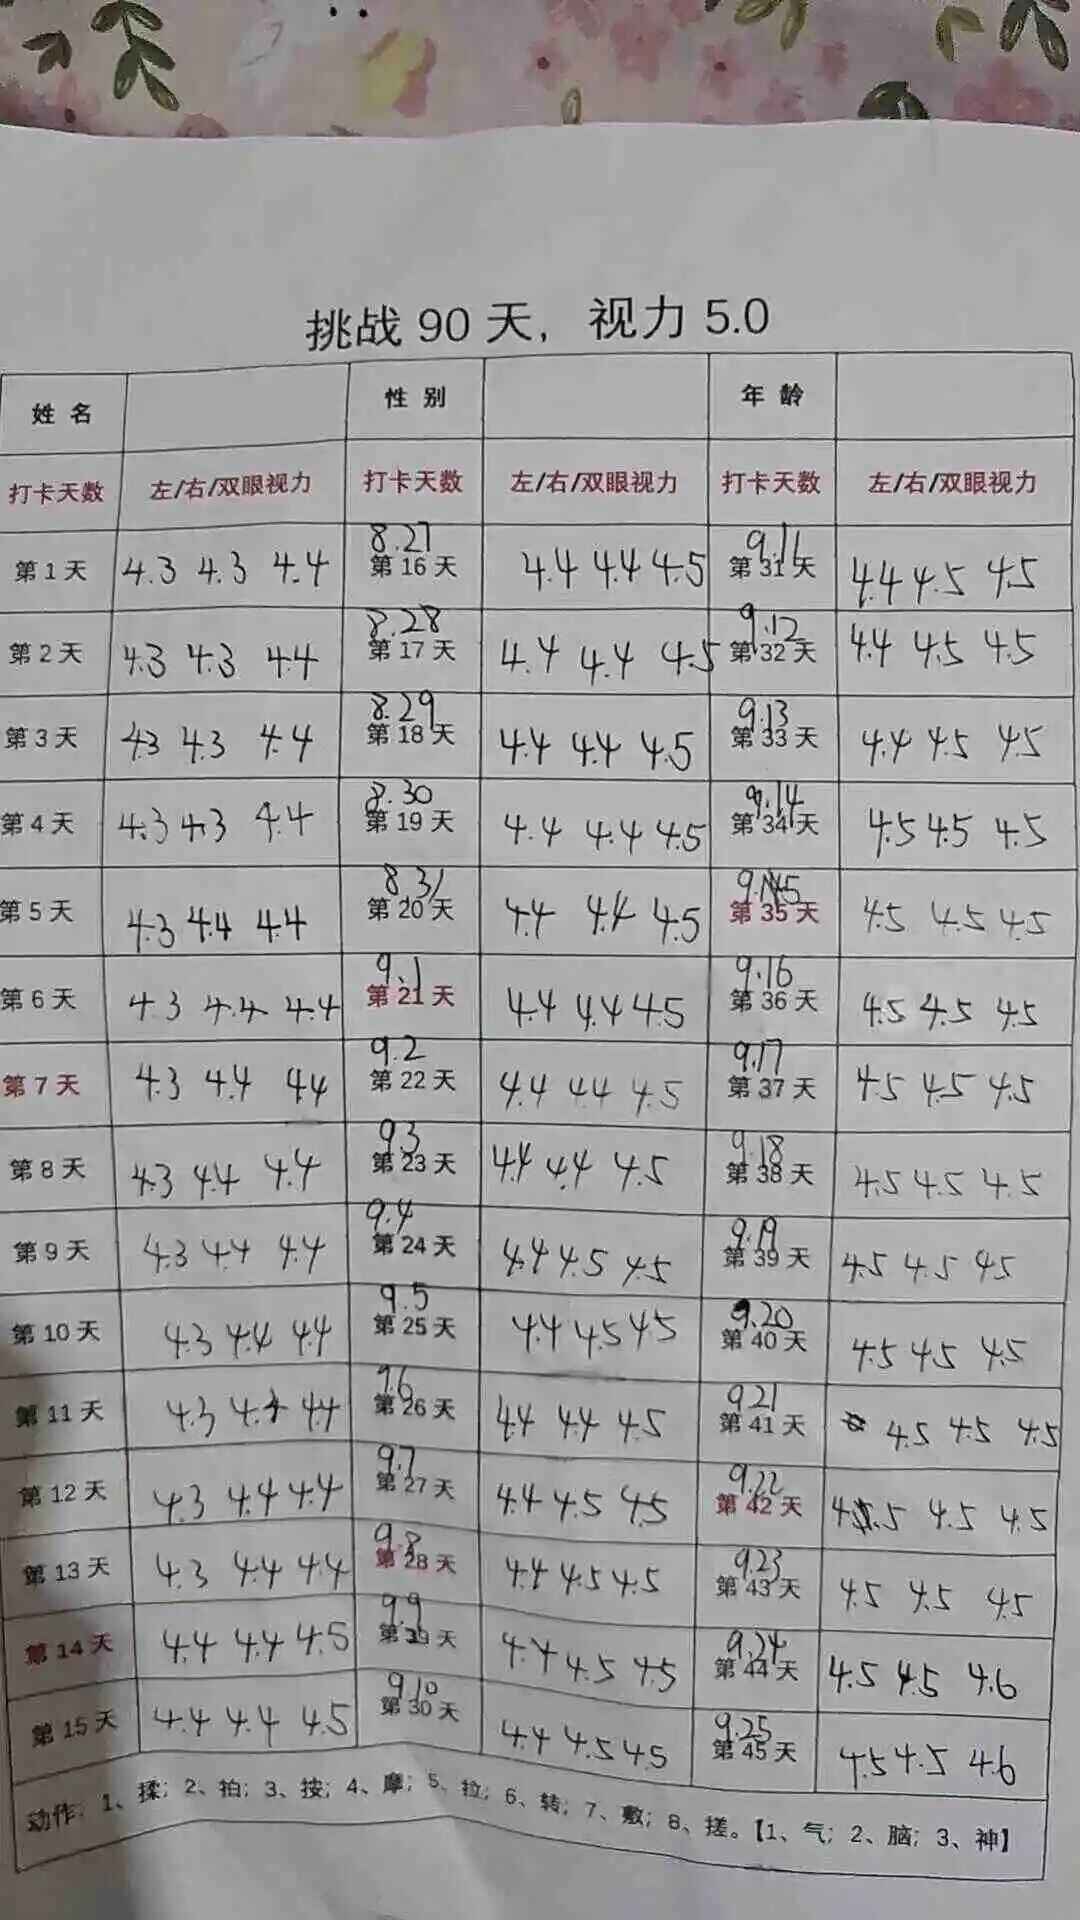 挑战 90 天，视力 5.0
姓 名 性 别 年 龄
打卡天数 左/右/双眼视力 打卡天数 左/右/双眼视力 打卡天数 左/右/双眼视力
第 1 天 4.3 4.3 4.4 8.27 第 16 天 4.4 4.4 4.5 9.11 第 31 天 4.4 4.5 4.5
第 2 天 4.3 4.3 4.4 8.28 第 17 天 4.4 4.4 4.5 9.12 第 32 天 4.4 4.5 4.5
第 3 天 4.3 4.3 4.4 8.29 第 18 天 4.4 4.4 4.5 9.13 第 33 天 4.4 4.5 4.5
第 4 天 4.3 4.3 4.4 8.30 第 19 天 4.4 4.4 4.5 9.14 第 34 天 4.5 4.5 4.5
第 5 天 4.3 4.4 4.4 8.31 第 20 天 4.4 4.4 4.5 第 35 天 4.5 4.5 4.5
第 6 天 4.3 4.4 4.4 9.1 第 21 天 4.4 4.4 4.5 9.16 第 36 天 4.5 4.5 4.5
第 7 天 4.3 4.4 4.4 9.2 第 22 天 4.4 4.4 4.5 9.17 第 37 天 4.5 4.5 4.5
第 8 天 4.3 4.4 4.4 9.3 第 23 天 4.4 4.4 4.5 9.18 第 38 天 4.5 4.5 4.5
第 9 天 4.3 4.4 4.4 9.4 第 24 天 4.4 4.5 4.5 9.19 第 39 天 4.5 4.5 4.5
第 10 天 4.3 4.4 4.4 9.5 第 25 天 4.4 4.5 4.5 9.20 第 40 天 4.5 4.5 4.5
第 11 天 4.3 4.4 4.4 9.6 第 26 天 4.4 4.4 4.5 9.21 第 41 天 4.5 4.5 4.5
第 12 天 4.3 4.4 4.4 9.7 第 27 天 4.4 4.5 4.5 9.22 第 42 天 4.5 4.5 4.5
第 13 天 4.3 4.4 4.4 9.8 第 28 天 4.4 4.5 4.5 9.23 第 43 天 4.5 4.5 4.5
第 14 天 4.4 4.4 4.5 9.9 第 29 天 4.4 4.5 4.5 9.24 第 44 天 4.5 4.5 4.6
第 15 天 4.4 4.4 4.5 9.10 第 30 天 4.4 4.5 4.5 9.25 第 45 天 4.5 4.5 4.6
动作：1、揉；2、拍；3、按；4、摩；5、拉；6、转；7、敷；8、搓。【1、气；2、脑；3、神】